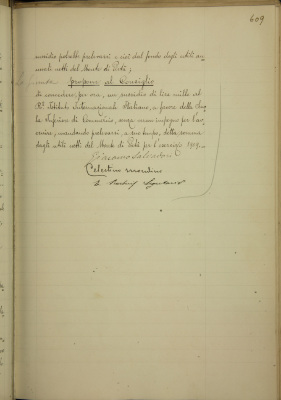 609
sussidio potrebbe prelevarsi e cioè dal fondo degli utili an-
nuali netti del Monte di Pietà;
propone al Consiglio
di concedere, per ora, un sussidio di lire mille al
R.° Istituto Internazionale Italiano, a favore della Scuo-
la Superiore di Commercio, senza verun impegno per l'av-
venire, mandando prelevarsi, a suo tempo, detta somma
dagli utili netti del Monte di Pietà per l'esercizio 1909.
Giacomo Salvadori
Celestino